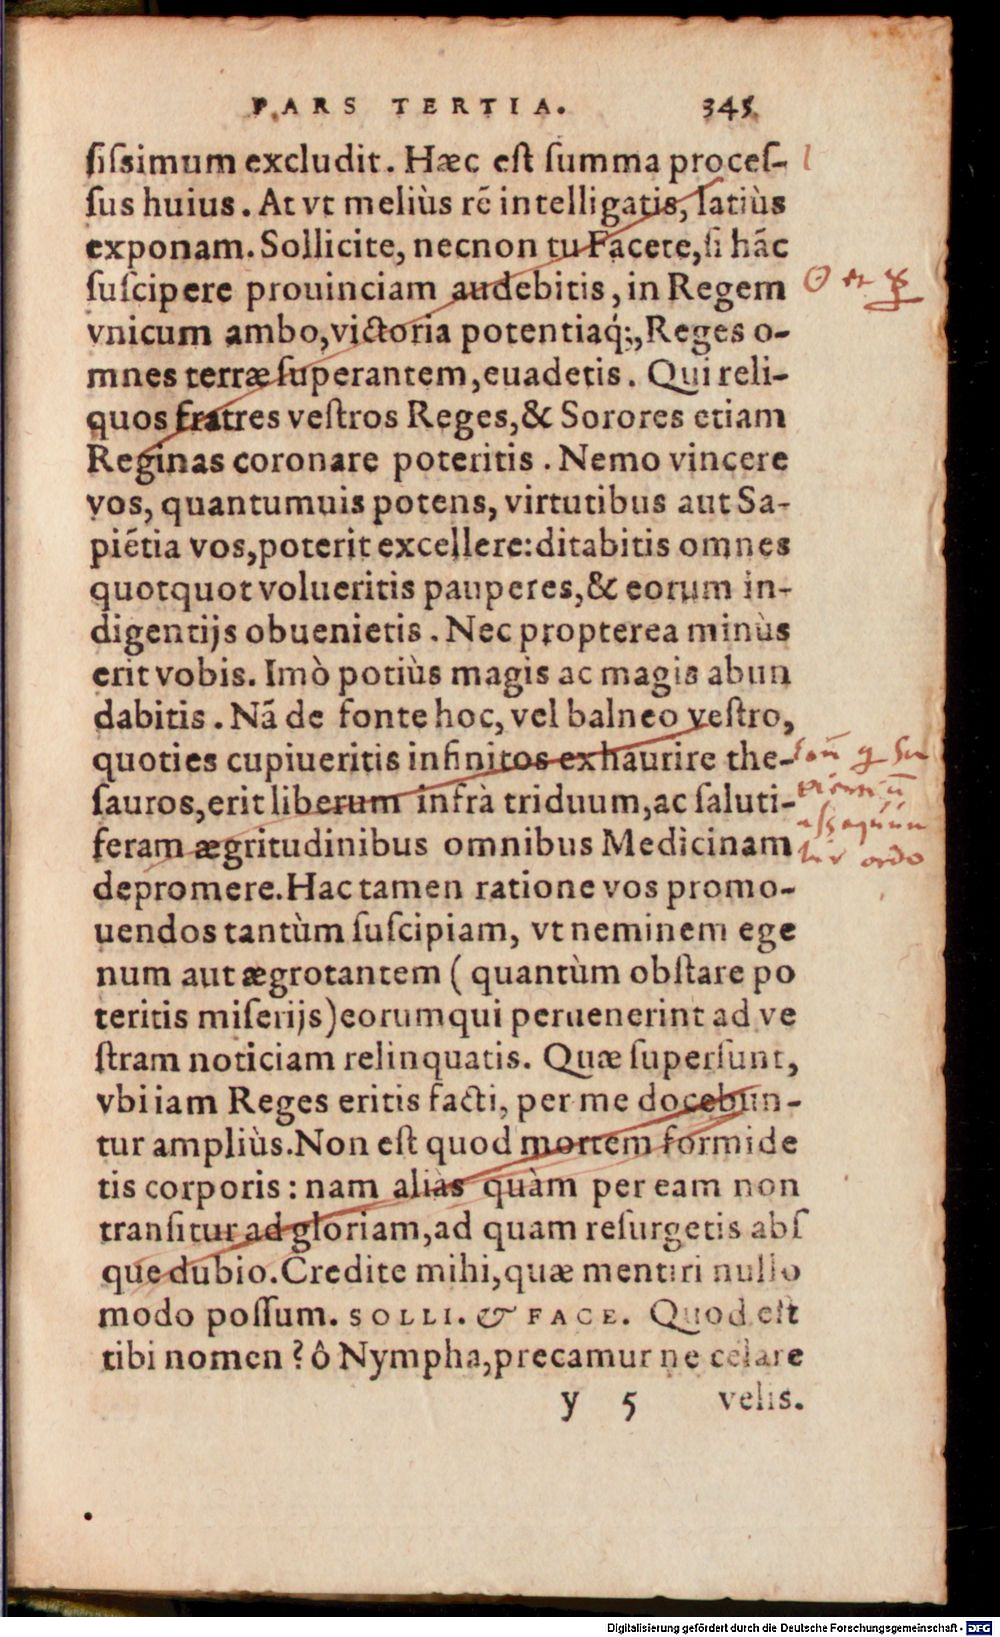 PARS TERTIA. 345
ſiſsimum excludit. Hæc eſt ſumma proceſ-
ſus huius. At vt meliùs rē intelligatis, latiùs
exponam. Sollicite, necnon tu Facete, ſi hāc
ſuſcipere prouinciam audebitis, in Regem
vnicum ambo, victoria potentiaq́;, Reges o-
mnes terræ ſuperantem, euadetis. Qui reli-
quos fratres veſtros Reges, & Sorores etiam
Reginas coronare poteritis. Nemo vincere
vos, quantumuis potens, virtutibus aut Sa-
piētia vos, poterit excellere: ditabitis omnes
quotquot volueritis pauperes, & eorum in-
digentijs obuenietis. Nec propterea minùs
erit vobis. Imò potiùs magis ac magis abun
dabitis. Nā de fonte hoc, vel balneo veſtro,
quoties cupiueritis infinitos exhaurire the-
ſauros, erit liberum infrà triduum, ac ſaluti-
feram ægritudinibus omnibus Medicinam
depromere. Hac tamen ratione vos promo-
uendos tantùm ſuſcipiam, vt neminem ege
num aut ægrotantem (quantùm obſtare po
teritis miſerijs) eorum qui peruenerint ad ve
ſtram noticiam relinquatis. Quæ ſuperſunt,
vbi iam Reges eritis facti, per me docebun-
tur ampliùs. Non eſt quod mortem formide
tis corporis: nam aliàs quàm per eam non
tranſitur ad gloriam, ad quam reſurgetis abſ
que dubio. Credite mihi, quæ mentiri nullo
modo poſſum. SOLLI. & FACE. Quod eſt
tibi nomen? ô Nympha, precamur ne celare
y 5 velis.
et
ordo
Digitalisierung gefördert durch die Deutsche Forschungsgemeinschaft - DFG